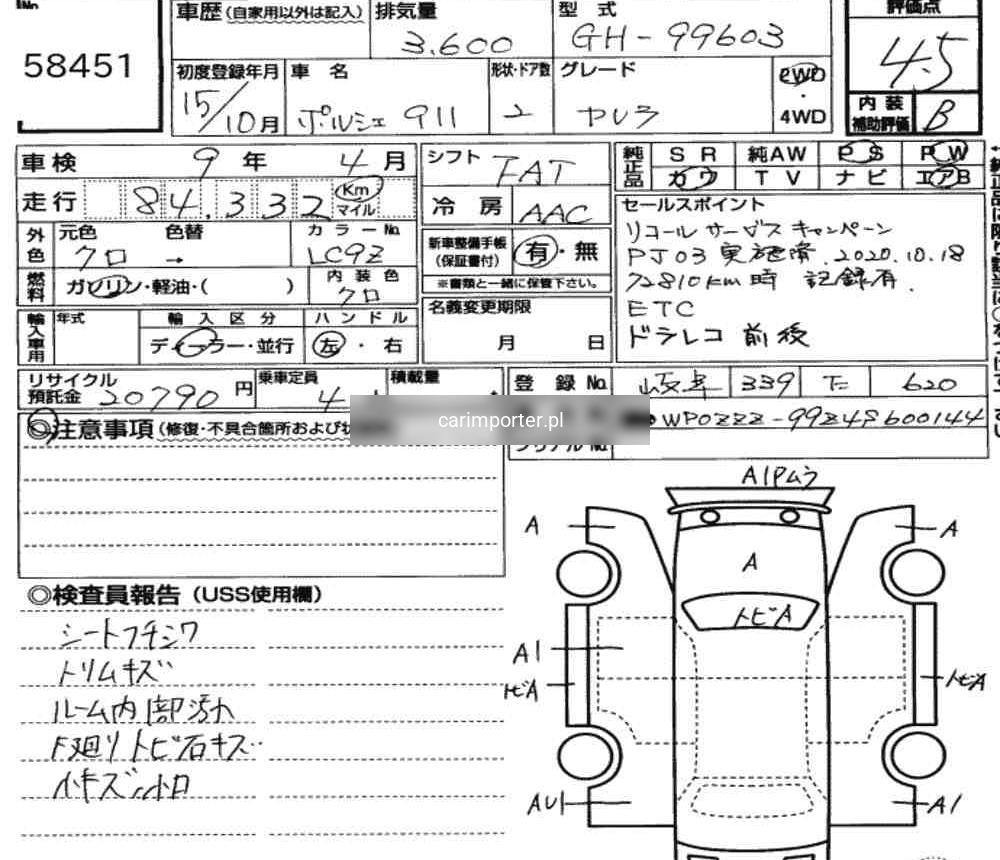 No
58451
車歴 (自家用以外は記入) 排気量 3.600 型式 GH-99603 評価点 4.5
初度登録年月 15/10月 車名 ポルシェ 911 形状・ドア数 2 グレード カレラ 2WD・4WD
内装補助評価 B
車検 9年 4月 シフト FAT 純正品 SR 純AW PS PW
カワ TV ナビ エアB
走行 84.332 Km マイル 冷房 AAC セールスポイント
リコール サービス キャンペーン
外色 元色 クロ 色替 → カラーNo. LC9Z 新車整備手帳(保証書付) 有・無 PJ03 実施済. 2020.10.18
72810km時 記録有.
燃料 ガソリン・軽油・( ) 内装色 クロ ※書類と一緒に保管下さい。
ETC
ドラレコ 前後
輸入車用 年式 輸入区分 ディーラー・並行 ハンドル 左・右 名義変更期限 月 日
リサイクル預託金 20790円 乗車定員 4 積載量 登録No. 岐阜 339 620
carimporter.pl
WP0ZZZ-99Z4S600144
シリアルNo.
◎注意事項 (修復・不具合箇所および
A1Pムラ
A A
A
トビA
A1
トビA トビA
AU1 A1
◎検査員報告 (USS使用欄)
シートフチシワ
トリムキズ
ルーム内部汚れ
下廻りトビ石キズ
小キズ小凹